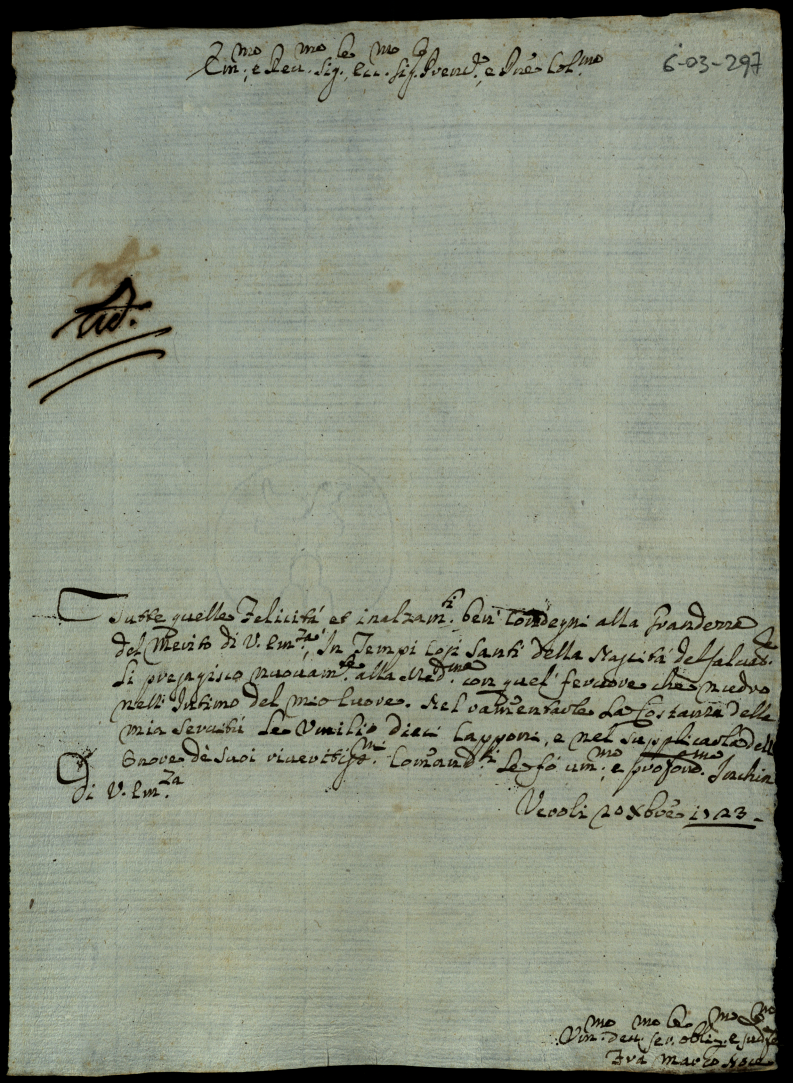 Em.mo e Rev.mo Sig.re, Sig.re Prone Col.mo
6-03-297
Tutte quelle Felicitá et inalzam.ti ben' condegni alla Grandezza
del Merito di V. Em.za, In Tempi cosi Santi della Nascitá del Salvat.e
Li presagisco nuovam.te alla Med.ma con quel fervore che nudro
nell' Intimo del mio Cuore. Nel ramentarle La Costanza della
mia servitú Le Umilio dieci Capponi, e nel supplicarla dell'
Onore de Suoi riveritiss.mi Comand.ti Le fó um.mo e profond.mo Inchin
Di V. Em.za
Veroli 20 Xbre 1723
Um.mo dev.mo ser.e obl.mo e
Fra Marco